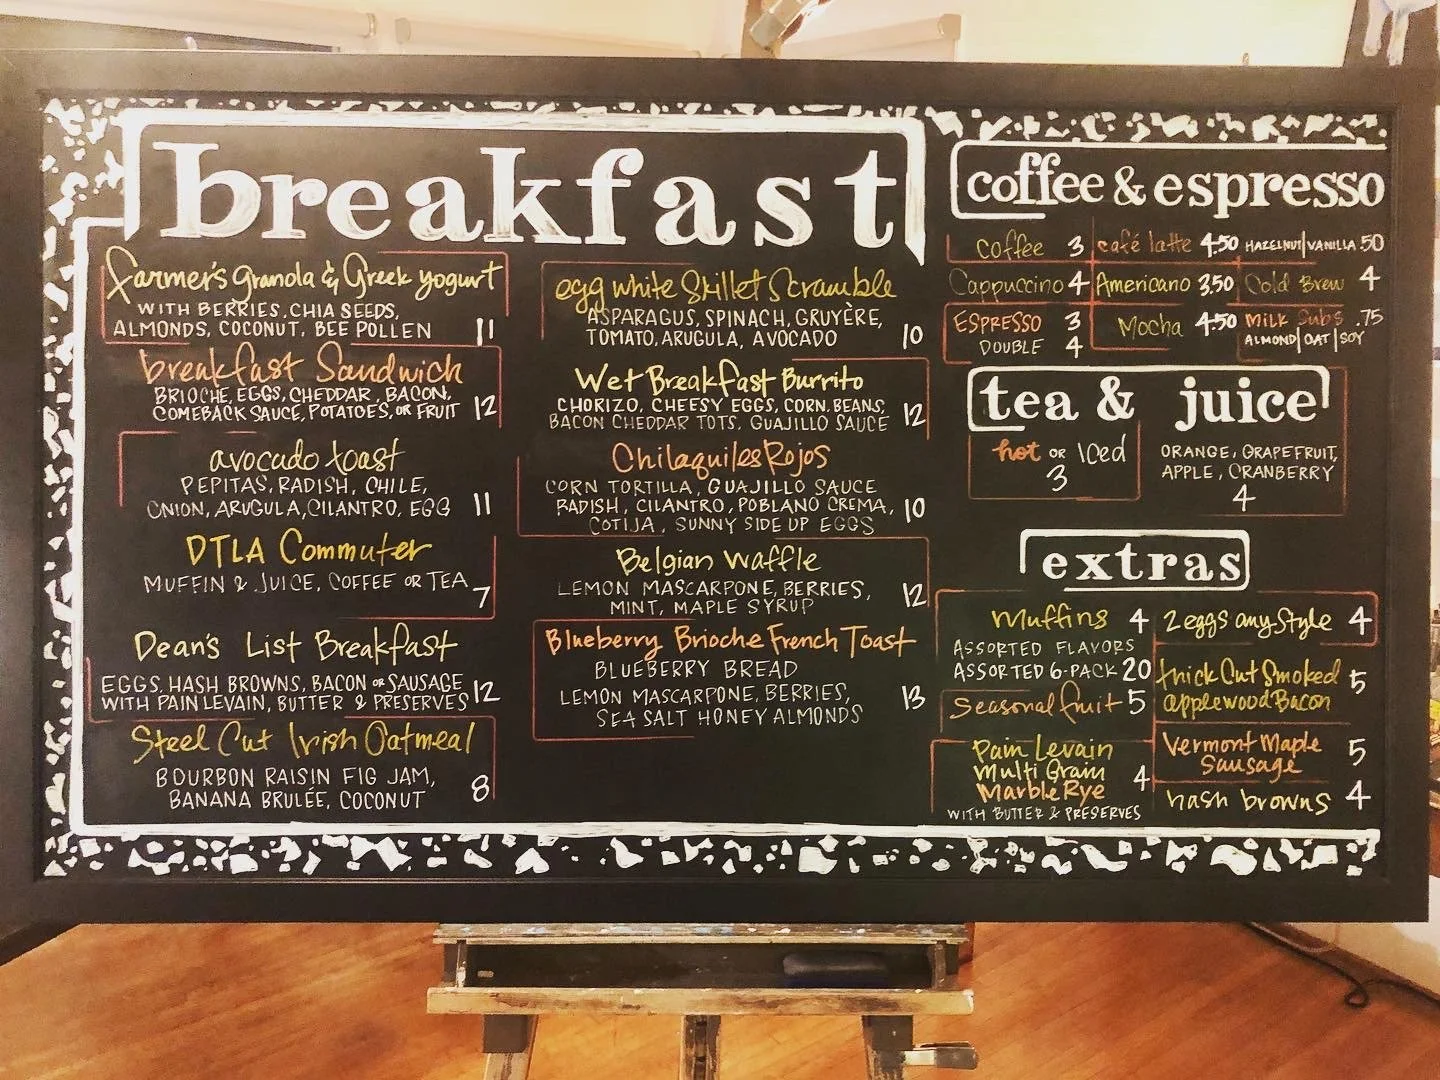 breakfast
farmer's granola & Greek yogurt
WITH BERRIES, CHIA SEEDS,
ALMONDS, COCONUT, BEE POLLEN 11
breakfast Sandwich
BRIOCHE, EGGS, CHEDDAR, BACON,
COMEBACK SAUCE, POTATOES, OR FRUIT 12
avocado toast
PEPITAS, RADISH, CHILE,
ONION, ARUGULA, CILANTRO, EGG 11
DTLA Commuter
MUFFIN & JUICE, COFFEE OR TEA
7
Dean's List Breakfast
EGGS, HASH BROWNS, BACON OR SAUSAGE
WITH PAIN LEVAIN, BUTTER & PRESERVES 12
Steel Cut Irish Oatmeal
BOURBON RAISIN FIG JAM,
BANANA BRULÉE, COCONUT 8
egg white Skillet Scramble
ASPARAGUS, SPINACH, GRUYÈRE,
TOMATO, ARUGULA, AVOCADO 10
Wet Breakfast Burrito
CHORIZO, CHEESY EGGS, CORN, BEANS,
BACON CHEDDAR TOTS, GUAJILLO SAUCE 12
Chilaquiles Rojos
CORN TORTILLA, GUAJILLO SAUCE
RADISH, CILANTRO, POBLANO CREMA, 10
COTIJA, SUNNY SIDE UP EGGS
Belgian Waffle
LEMON MASCARPONE, BERRIES,
MINT, MAPLE SYRUP 12
Blueberry Brioche French Toast
BLUEBERRY BREAD
LEMON MASCARPONE, BERRIES,
SEA SALT HONEY ALMONDS 13
coffee & espresso
coffee 3 café latte 4.50 HAZELNUT|VANILLA .50
Cappuccino 4 Americano 3.50 Cold Brew 4
ESPRESSO 3 Mocha 4.50 Milk Subs .75
DOUBLE 4 ALMOND|OAT|SOY
tea & juice
hot OR Iced
3
ORANGE, GRAPEFRUIT,
APPLE, CRANBERRY
4
extras
Muffins 4
ASSORTED FLAVORS
ASSORTED 6-PACK 20
Seasonal fruit 5
Pain Levain
Multi Grain 4
Marble Rye
WITH BUTTER & PRESERVES
2 eggs any Style 4
thick Cut Smoked
applewood Bacon 5
Vermont Maple
Sausage 5
hash browns 4